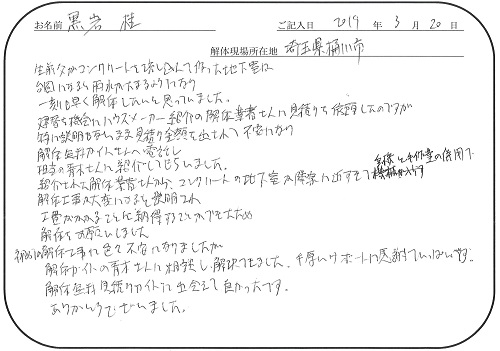 お名前 黒岩 桂 ご記入日 2019 年 3 月 20 日
解体現場所在地 埼玉県桶川市
生前父がコンクリートを流し込んで作った地下室は
梅雨になると雨水がたまるようになり
一刻も早く解体したいと思っていました。
建替を機会にハウスメーカー紹介の解体業者さんに見積りを依頼したのですが
特に説明も無いまま見積り金額を出されて不安になり
解体無料ガイドさんへ電話し
担当の青木さんに紹介してもらいました。
紹介された解体業者さんから、コンクリートの地下室が隣家に近すぎて
重機と手作業の併用で
機械が入らず
解体工事が大変になると説明され
工費がかかることに納得することができたため
解体をお願いしました
初めての解体工事に色々不安になりましたが
解体ガイドの青木さんに相談し解決できました。手厚いサポートに感謝でいっぱいです。
解体無料見積りガイドに出会えて良かったです。
ありがとうございました。